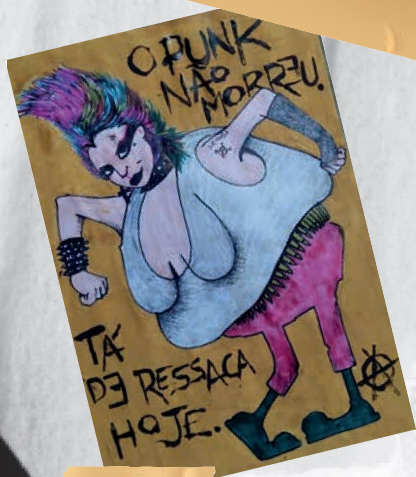 O PUNK
NÃO
MORREU.
TÁ
DE RESSACA
HOJE.